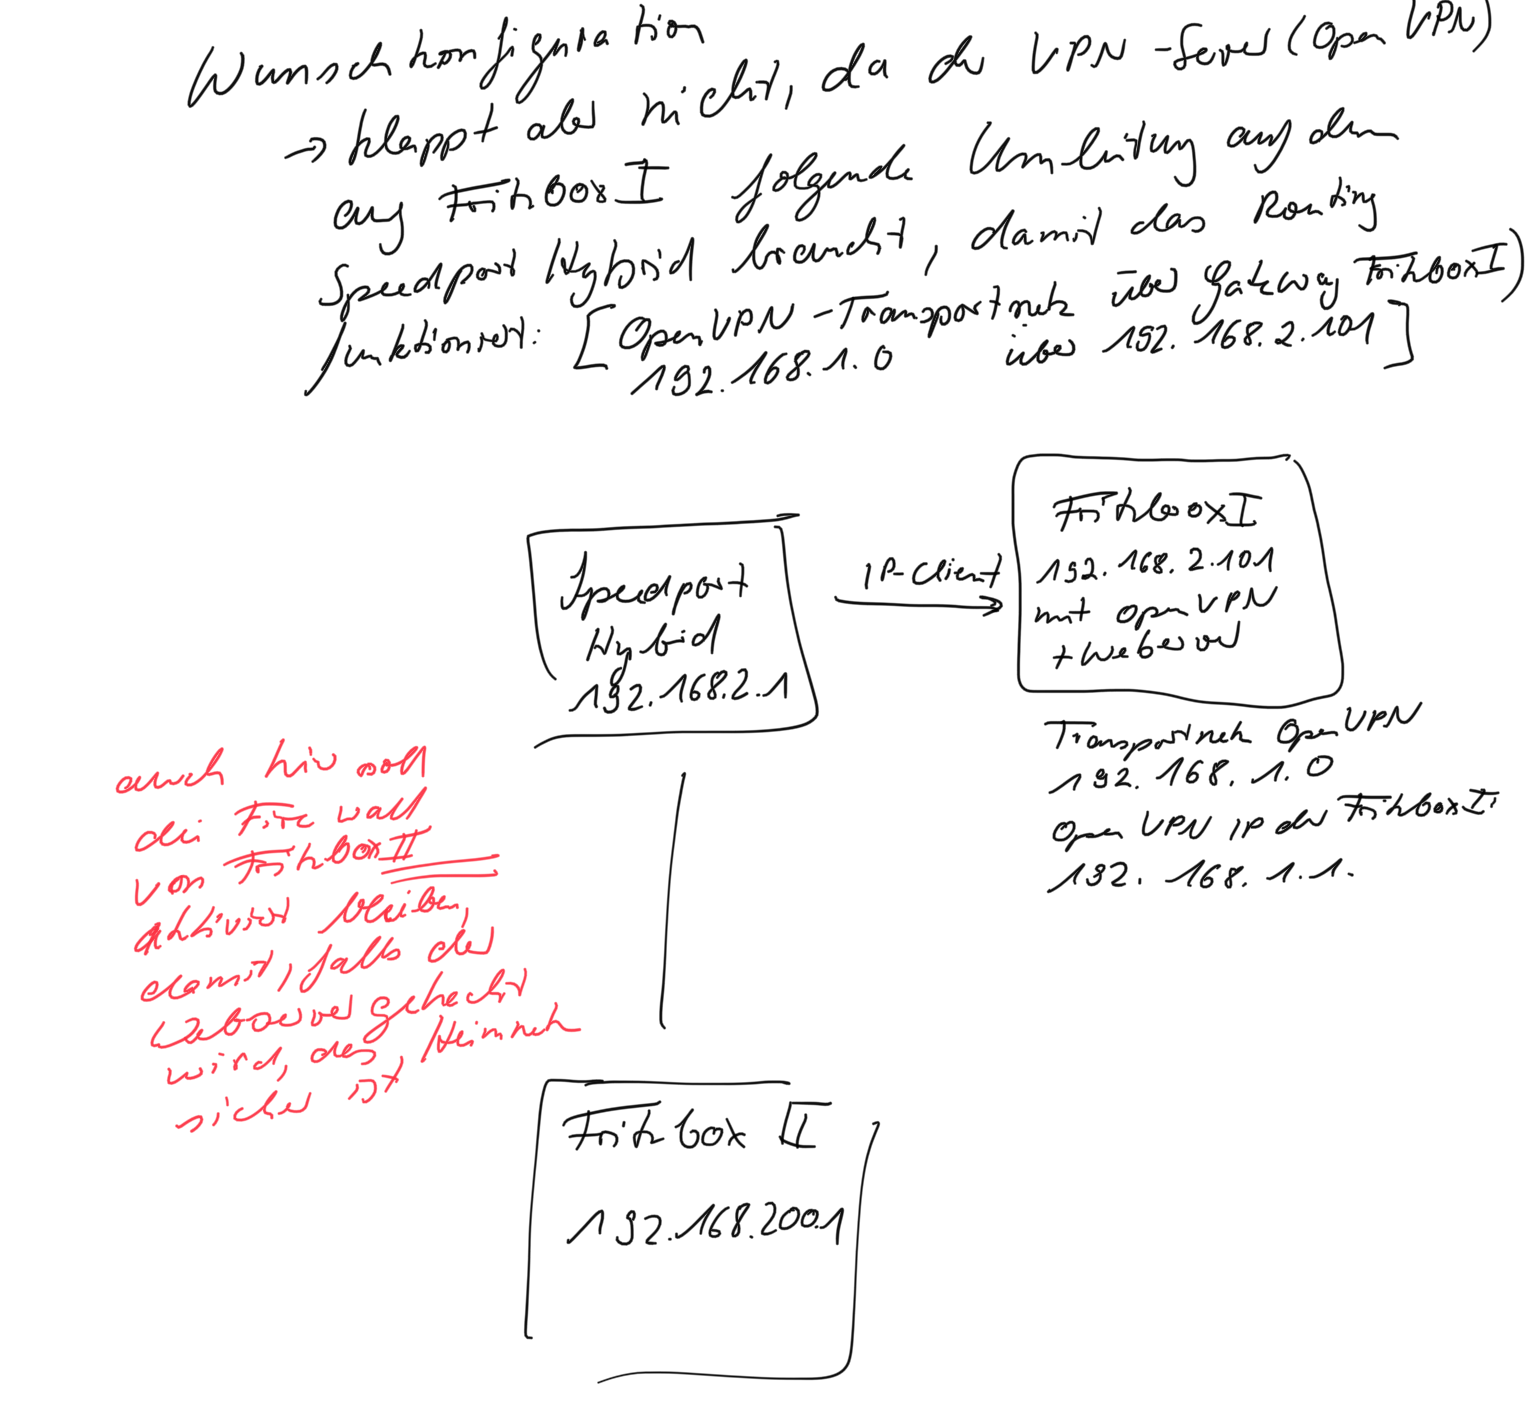 Wunschkonfiguration
→ klappt aber nicht, da der VPN-Server (Open VPN)
auf Fritzbox I folgende Umleitung auf dem
Speedport Hybrid braucht, damit das Routing
funktioniert: [OpenVPN-Transportnetz über Gateway Fritzbox I)
192.168.1.0 über 192.168.2.101]
Fritzbox I
192.168.2.101
mit OpenVPN
+ Webserver
IP-Client
Speedport
Hybrid
192.168.2.1
Transportnetz OpenVPN
192.168.1.0
Open VPN IP der Fritzbox I:
192.168.1.1.
auch hier soll
die Firewall
von Fritzbox II
aktiviert bleiben,
damit, falls der
Webserver gehackt
wird, das Heimnetz
sicher ist
Fritzbox II
192.168.200.1